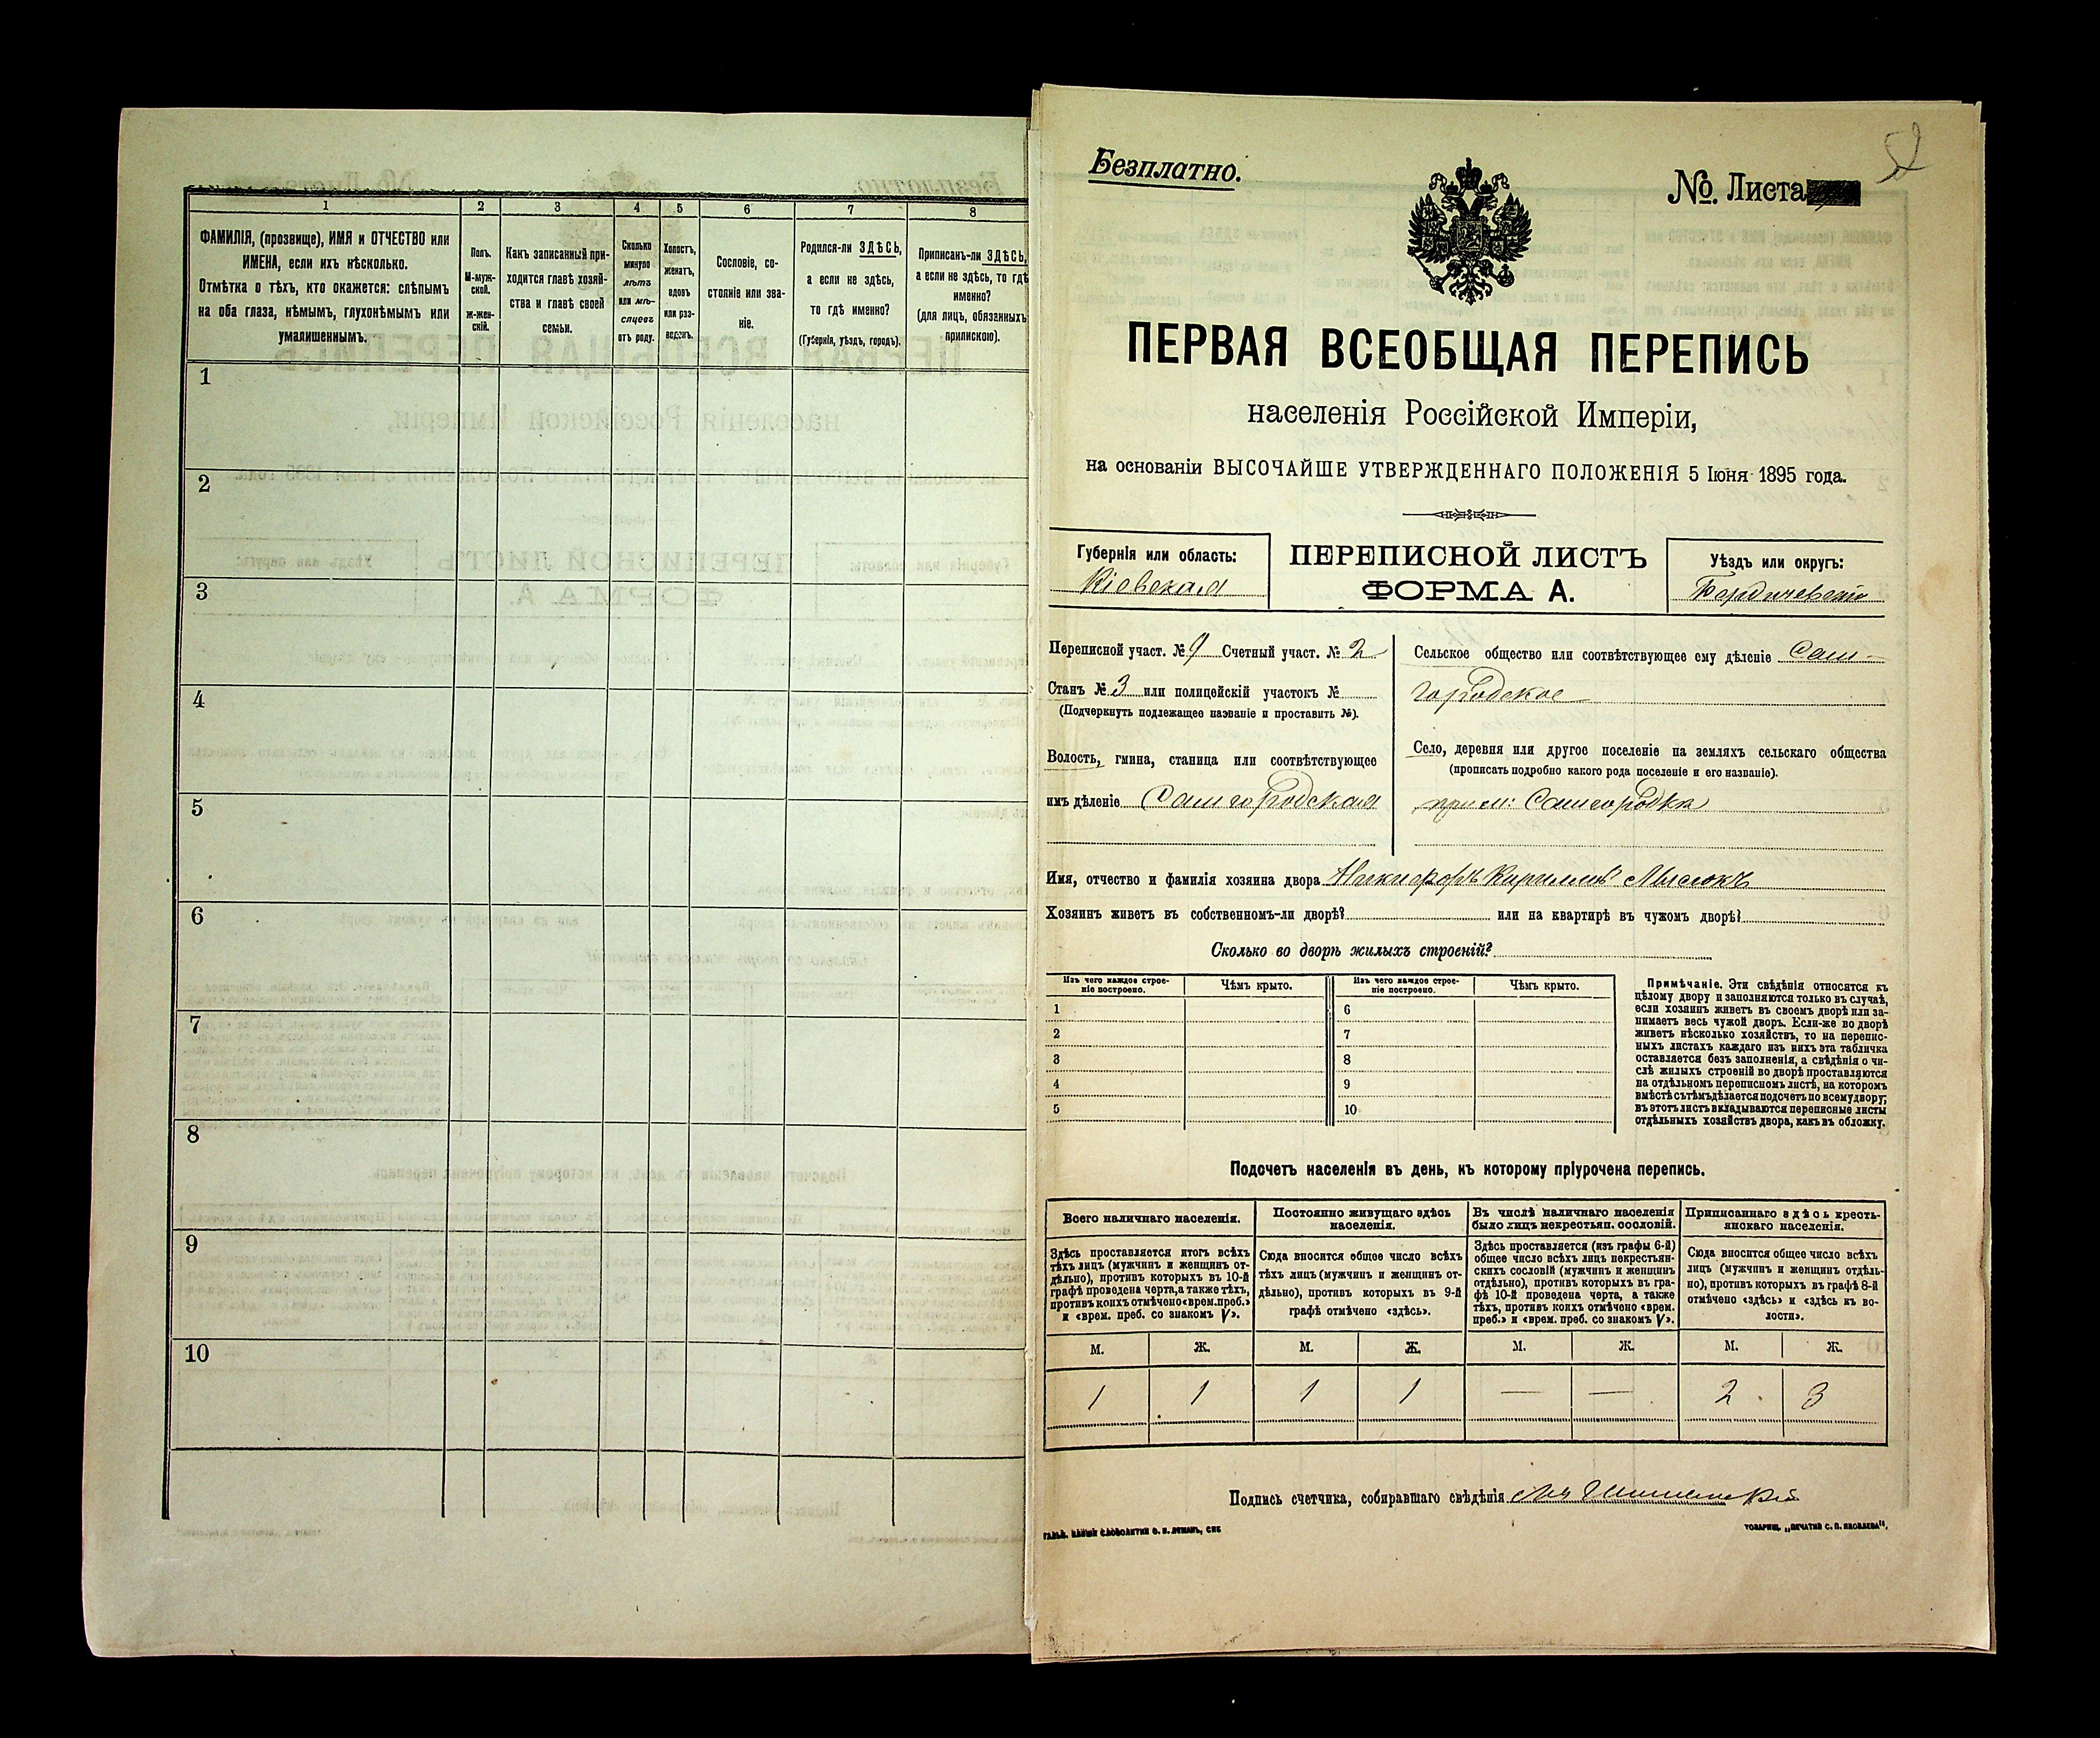 1 2 3 4 5 6 7 8
ФАМИЛІЯ, (прозвище), ИМЯ и ОТЧЕСТВО или
ИМЕНА, если ихъ нѣсколько.
Отмѣтка о тѣхъ, кто окажется: слѣпымъ
на оба глаза, нѣмымъ, глухонѣмымъ или
умалишеннымъ.
Полъ.
М-муж-
ской.
ж-жен-
скій.
Какъ записанный при-
ходится главѣ хозяй-
ства и главѣ своей
семьи.
Сколько
минуло
лѣтъ
или мѣ-
сяцевъ
отъ роду.
Холостъ,
женатъ,
вдовъ
или раз-
веденъ.
Сословіе, со-
стояніе или зва-
ніе.
Родился-ли ЗДѢСЬ,
а если не здѣсь,
то гдѣ именно?
(Губернія, уѣздъ, городъ).
Приписанъ-ли ЗДѢСЬ,
а если не здѣсь, то гдѣ
именно?
(для лицъ, обязанныхъ
припискою).
1
2
3
4
5
6
7
8
9
10
Безплатно.
№. Листа
52
ПЕРВАЯ ВСЕОБЩАЯ ПЕРЕПИСЬ
населенія Россійской Имперіи,
на основаніи ВЫСОЧАЙШЕ УТВЕРЖДЕННАГО ПОЛОЖЕНІЯ 5 Іюня 1895 года.
Губернія или область:
Кіевская
ПЕРЕПИСНОЙ ЛИСТЪ
ФОРМА А.
Уѣздъ или округъ:
Бердичевскій
Переписной участ. № 9 Счетный участ. № 2
Станъ № 3 или полицейскій участокъ №
(Подчеркнуть подлежащее названіе и проставить №).
Волость, гмина, станица или соотвѣтствующее
имъ дѣленіе Самгородская
Сельское общество или соотвѣтствующее ему дѣленіе Сам-
городское
Село, деревня или другое поселеніе на земляхъ сельскаго общества
(прописать подробно какого рода поселеніе и его названіе).
Самгородка
Имя, отчество и фамилія хозяина двора Никифоръ Кирилловъ
Хозяинъ живетъ въ собственномъ-ли дворѣ? или на квартирѣ въ чужомъ дворѣ?
Сколько во дворѣ жилыхъ строеній?
Изъ чего каждое строе-
ніе построено.
Чѣмъ крыто.
Изъ чего каждое строе-
ніе построено.
Чѣмъ крыто.
1 6
2 7
3 8
4 9
5 10
Примѣчаніе. Эти свѣдѣнія относятся къ
цѣлому двору и заполняются только въ случаѣ,
если хозяинъ живетъ въ своемъ дворѣ или за-
нимаетъ весь чужой дворъ. Если-же во дворѣ
живетъ нѣсколько хозяйствъ, то на перепис-
ныхъ листахъ каждаго изъ нихъ эта табличка
оставляется безъ заполненія, а свѣдѣнія о чи-
слѣ жилыхъ строеній во дворѣ проставляются
на отдѣльномъ переписномъ листѣ, на которомъ
вмѣстѣ съ тѣмъ дѣлается подсчетъ по всему двору;
въ этотъ листъ вкладываются переписные листы
отдѣльныхъ хозяйствъ двора, какъ въ обложку.
Подсчетъ населенія въ день, къ которому пріурочена перепись.
Всего наличнаго населенія.
Постоянно живущаго здѣсь
населенія.
Въ числѣ наличнаго населенія
было лицъ некрестьян. сословій.
Приписаннаго здѣсь кресть-
янскаго населенія.
Здѣсь проставляется итогъ всѣхъ
тѣхъ лицъ (мужчинъ и женщинъ от-
дѣльно), противъ которыхъ въ 10-й
графѣ проведена черта, а также тѣхъ,
противъ коихъ отмѣчено «врем. преб.»
и «врем. преб. со знакомъ V».
Сюда вносится общее число всѣхъ
тѣхъ лицъ (мужчинъ и женщинъ от-
дѣльно), противъ которыхъ въ 9-й
графѣ отмѣчено «здѣсь».
Здѣсь проставляется (изъ графы 6-й)
общее число всѣхъ лицъ некрестьян-
скихъ сословій (мужчинъ и женщинъ
отдѣльно), противъ которыхъ въ гра-
фѣ 10-й проведена черта, а также
тѣхъ, противъ коихъ отмѣчено «врем.
преб.» и «врем. преб. со знакомъ V».
Сюда вносится общее число всѣхъ
лицъ (мужчинъ и женщинъ отдѣль-
но), противъ которыхъ въ графѣ 8-й
отмѣчено «здѣсь» и «здѣсь къ во-
лости».
М. Ж. М. Ж. М. Ж. М. Ж.
1 1 1 1 — — 2 3
Подпись счетчика, собиравшаго свѣдѣнія
ТОВАРИЩ. „ПЕЧАТНЯ С. П. ЯКОВЛЕВА".